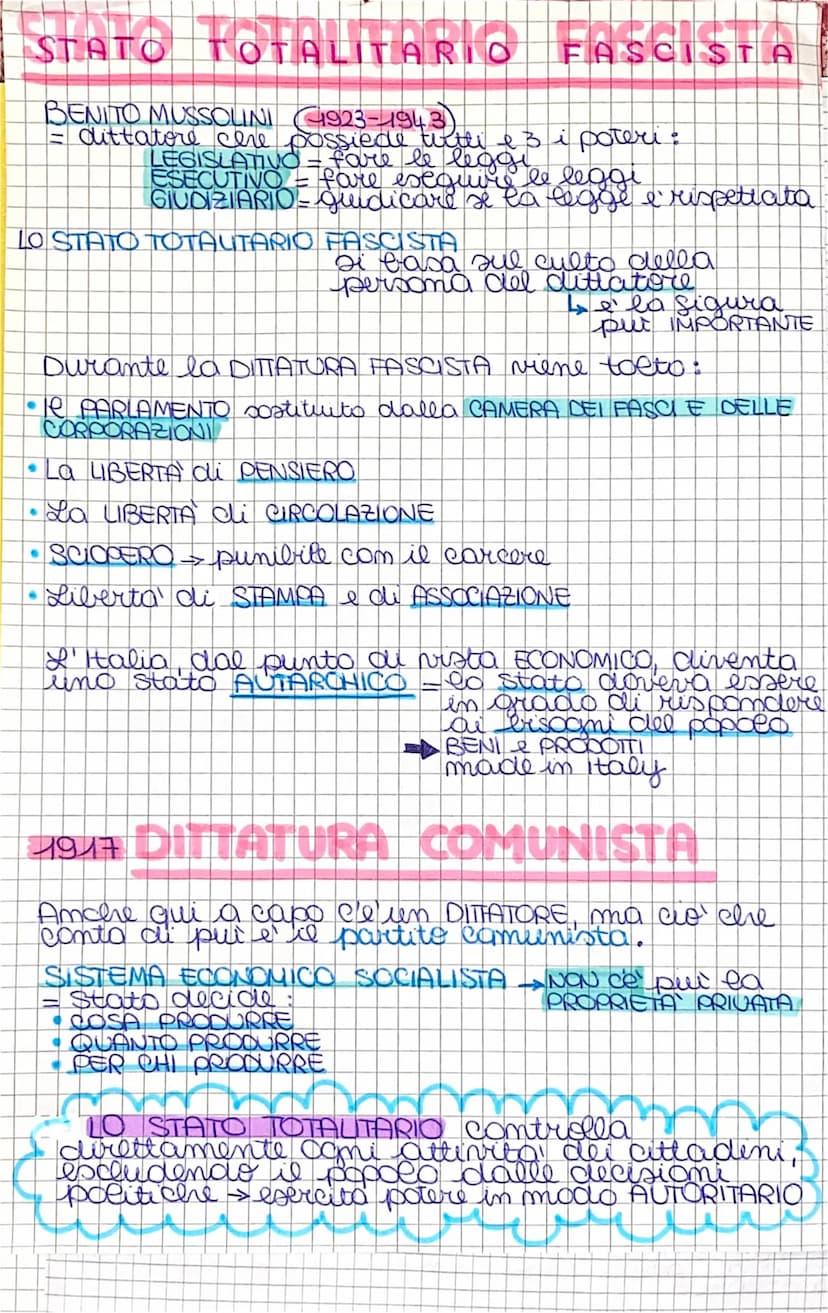 STATO TOTALITARIO FASCISTA
BENITO MUSSOLINI (1923-1943)
= dittatore che possiede tutti e 3 i poteri:
LEGISLATIVO = fare le leggi
ESECUTIVO = fare eseguire le leggi
GIUDIZIARIO = giudicare se la legge è rispettata
LO STATO TOTALITARIO FASCISTA
si basa sul culto della
persona del dittatore
↳ è la figura
più IMPORTANTE
Durante la DITTATURA FASCISTA viene tolto:
• il PARLAMENTO sostituito dalla CAMERA DEI FASCI E DELLE
CORPORAZIONI
• La LIBERTÀ di PENSIERO
• La LIBERTÀ di CIRCOLAZIONE
• SCIOPERO → punibile con il carcere
• Libertà di STAMPA e di ASSOCIAZIONE
L'Italia, dal punto di vista ECONOMICO, diventa
uno stato AUTARCHICO = lo stato doveva essere
in grado di rispondere
ai bisogni del popolo
➡ BENI e PRODOTTI
made in Italy
1917 DITTATURA COMUNISTA
Anche qui a capo c'è un DITTATORE, ma ciò che
conta di più è il partito comunista.
SISTEMA ECONOMICO SOCIALISTA → NON C'È più la
= Stato decide: PROPRIETÀ PRIVATA
• COSA PRODURRE
• QUANTO PRODURRE
• PER CHI PRODURRE
LO STATO TOTALITARIO controlla
direttamente ogni attività dei cittadini,
escludendo il popolo dalle decisioni
politiche → esercita potere in modo AUTORITARIO